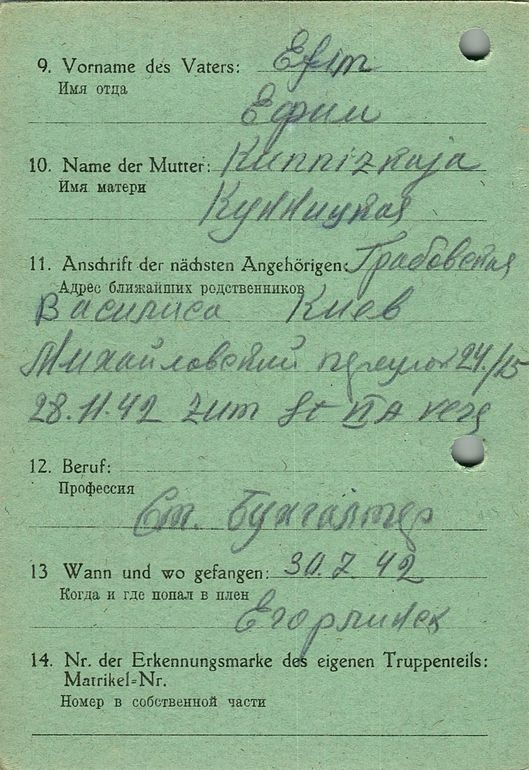 9. Vorname des Vaters: Efim
Имя отца
Ефим
10. Name der Mutter: Kunnizkaja
Имя матери
Кунницкая
11. Anschrift der nächsten Angehörigen: Грабовская
Адрес ближайших родственников
Василиса Киев
Михайловский переулок 24/25
28.11.42 zum St
12. Beruf:
Профессия
Ст. Бухгалтер
13 Wann und wo gefangen: 30.7.42
Когда и где попал в плен
14. Nr. der Erkennungsmarke des eigenen Truppenteils:
Matrikel-Nr.
Номер в собственной части